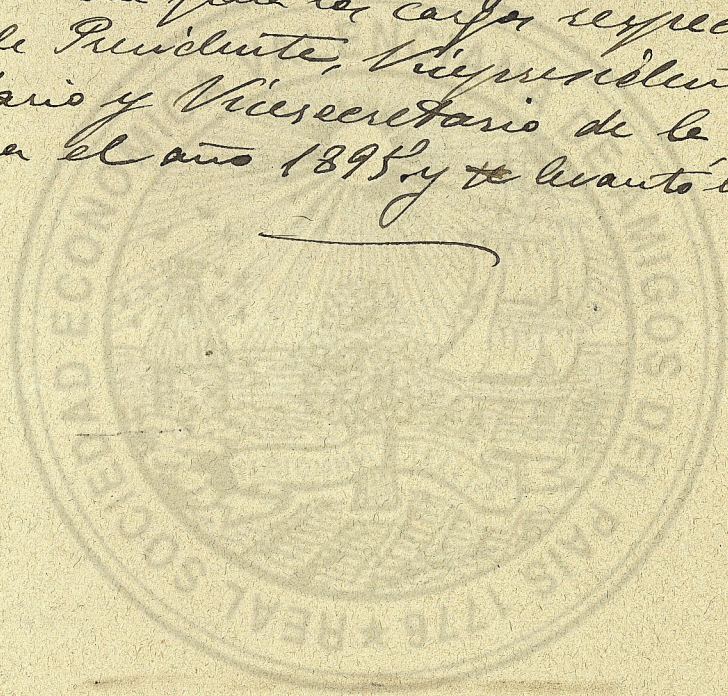 para los cargos respec
de Presidente, Vicepresiden
ario y Vicesecretario de la
el año 1895 y se levantó
REAL SOCIEDAD ECONOMICA DE AMIGOS DEL PAIS 1776